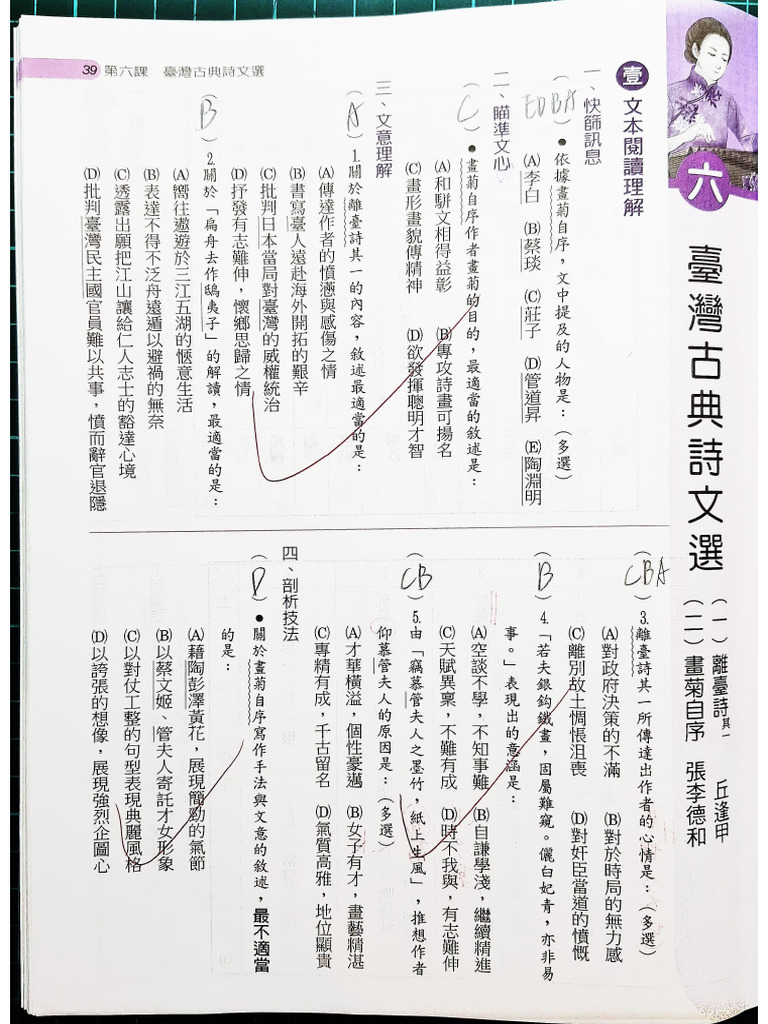 六
臺灣古典詩文選
(一)離臺詩其一 丘逢甲
(二)畫菊自序 張李德和
壹 文本閱讀理解
一、快篩訊息
(EDBA)●依據畫菊自序,文中提及的人物是:(多選)
(A)李白 (B)蔡琰 (C)莊子 (D)管道昇 (E)陶淵明
二、瞄準文心
(C)●畫菊自序作者畫菊的目的,最適當的敘述是:
(A)和駢文相得益彰 (B)專攻詩畫可揚名
(C)畫形畫貌傳精神 (D)欲發揮聰明才智
三、文意理解
(A)1.關於離臺詩其一的內容,敘述最適當的是:
(A)傳達作者的憤懣與感傷之情
(B)書寫臺人遠赴海外開拓的艱辛
(C)批判日本當局對臺灣的威權統治
(D)抒發有志難伸,懷鄉思歸之情
(B)2.關於「扁舟去作鴟夷子」的解讀,最適當的是:
(A)嚮往遨遊於三江五湖的愜意生活
(B)表達不得不泛舟遠遁以避禍的無奈
(C)透露出願把江山讓給仁人志士的豁達心境
(D)批判臺灣民主國官員難以共事,憤而辭官退隱
(CBA)3.離臺詩其一所傳達出作者的心情是:(多選)
(A)對政府決策的不滿 (B)對於時局的無力感
(C)離別故土惆悵沮喪 (D)對奸臣當道的憤慨
(B)4.「若夫銀鈎鐵畫,固屬難窺。儷白妃青,亦非易
事。」表現出的意涵是:
(A)空談不學,不知事難 (B)自謙學淺,繼續精進
(C)天賦異稟,不難有成 (D)時不我與,有志難伸
(CB)5.由「竊慕管夫人之墨竹,紙上生風」,推想作者
仰慕管夫人的原因是:(多選)
(A)才華橫溢,個性豪邁 (B)女子有才,畫藝精湛
(C)專精有成,千古留名 (D)氣質高雅,地位顯貴
四、剖析技法
(D)●關於畫菊自序寫作手法與文意的敘述,最不適當
的是:
(A)藉陶彭澤黃花,展現簡勁的氣節
(B)以蔡文姬、管夫人寄託才女形象
(C)以對仗工整的句型表現典麗風格
(D)以誇張的想像,展現強烈企圖心
39 第六課 臺灣古典詩文選